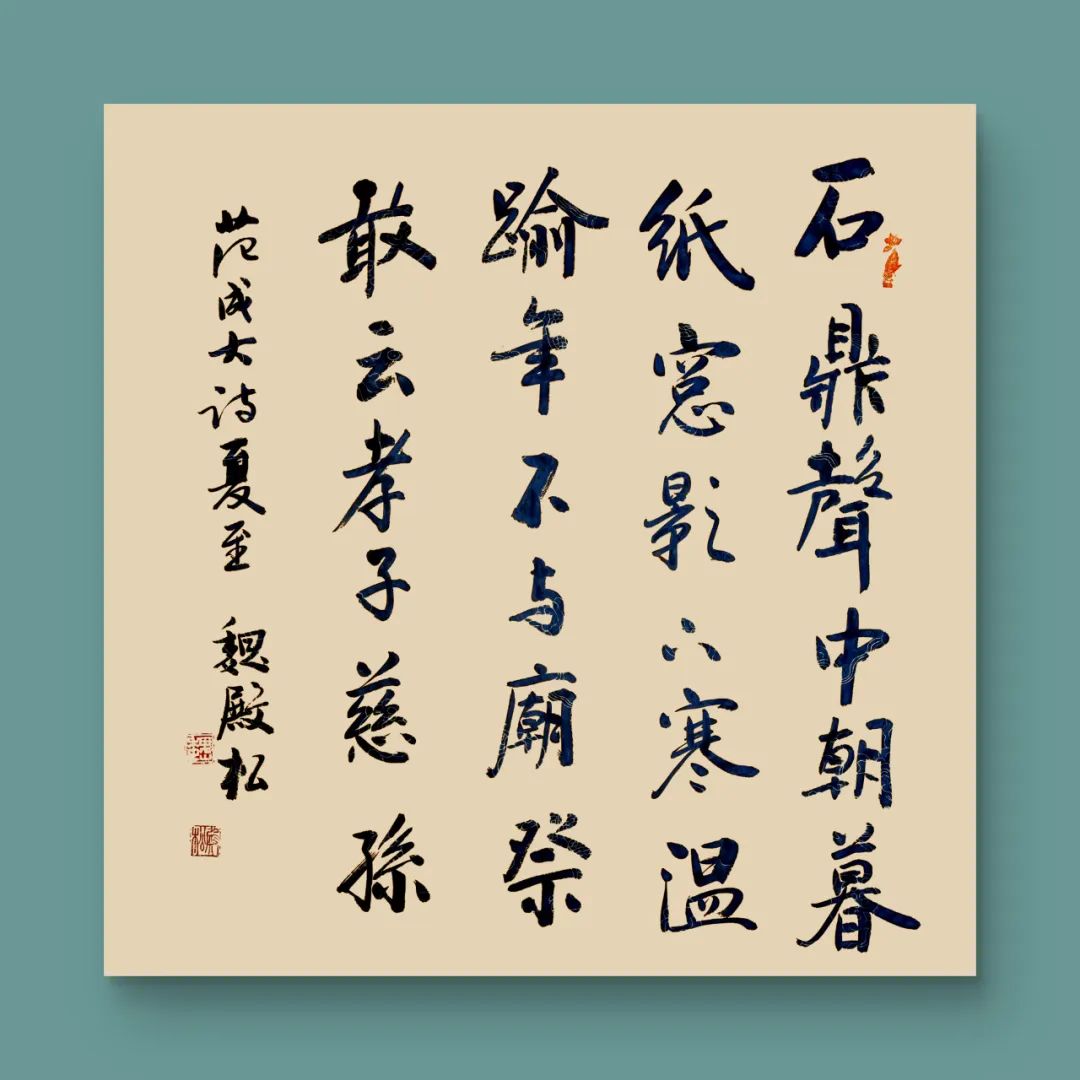 石鼎聲中朝暮
紙窓影下寒温
踰年不与廟祭
敢云孝子慈孫
范成大诗夏至 魏殿松